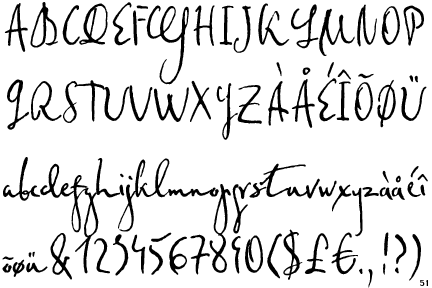 ABCDEFGHIJKLMNOP
QRSTUVWXYZÀÅÉÎÕØÜ
abcdefghijklmnopqrstuvwxyzàåéî
õøü&1234567890($£€.,!?)
51